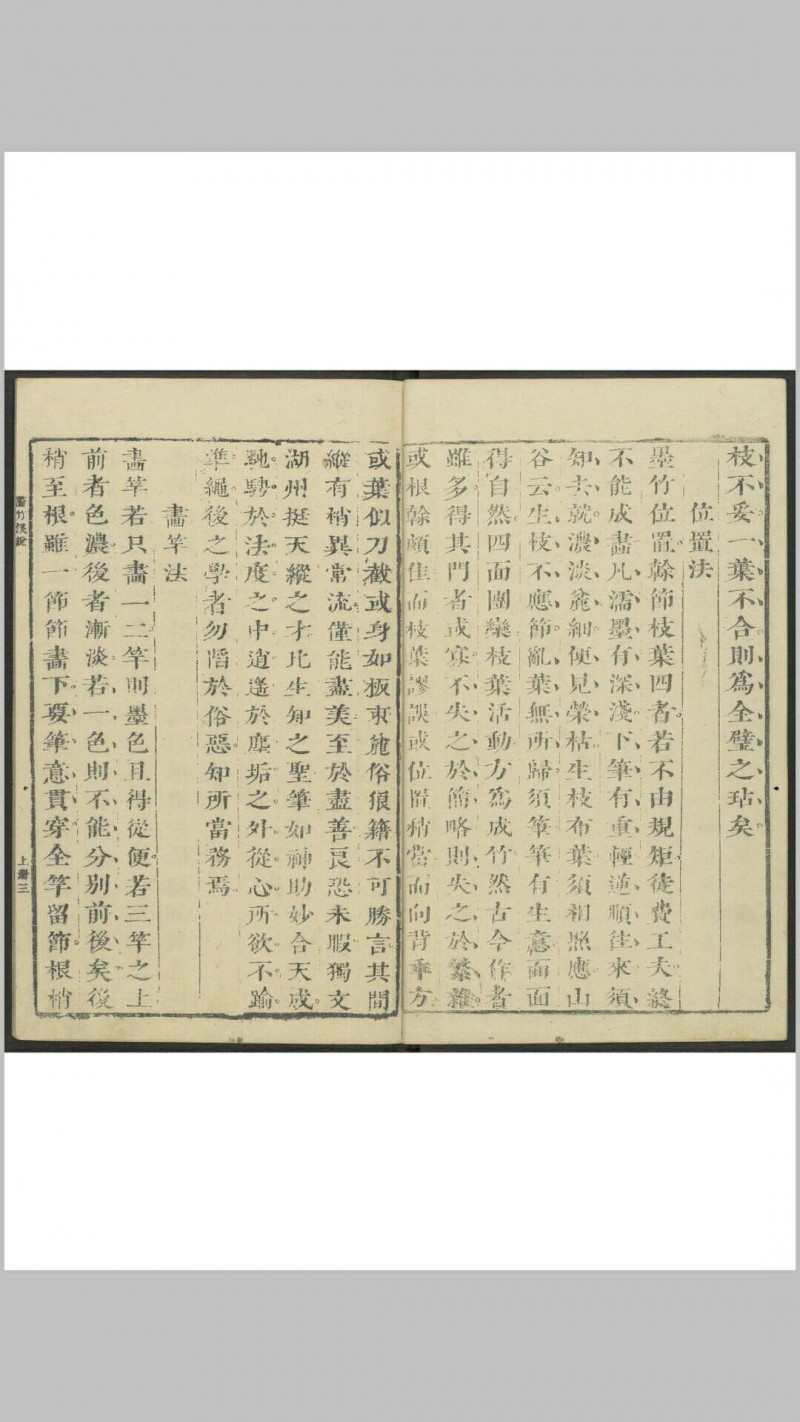 枝不妥一葉不合則爲全璧之玷矣
位置法
墨竹位置榦節枝葉四者若不由規矩徒費工夫終
不能成畵凡濡墨有深淺下筆有重輕逆順往來須
知去就濃淡麁細便見榮枯生枝布葉須相照應山
谷云生枝不應節亂葉無所歸須筆筆有生意面面
得自然四面團欒枝葉活動方爲成竹然古今作者
雖多得其門者或寡不失之於簡略則失之於繁雜
或根榦頗佳而枝葉謬誤或位置稍當而向背乖方
或葉似刀截或身如板束麁俗狼籍不可勝言其間
縱有稍異常流僅能盡美至於盡善良恐未暇獨文
湖州挺天縱之才比生知之聖筆如神助妙合天成
馳騁於法度之中逍遥於塵垢之外從心所欲不踰
準繩後之學者勿陷於俗惡知所當務焉
畵竿法
畵竿若只畵一二竿則墨色且得從便若三竿之上
前者色濃後者漸淡若一色則不能分别前後矣後
稍至根雖一節節畵下要筆意貫穿全竿留節根稍
畵竹淺說
上册三